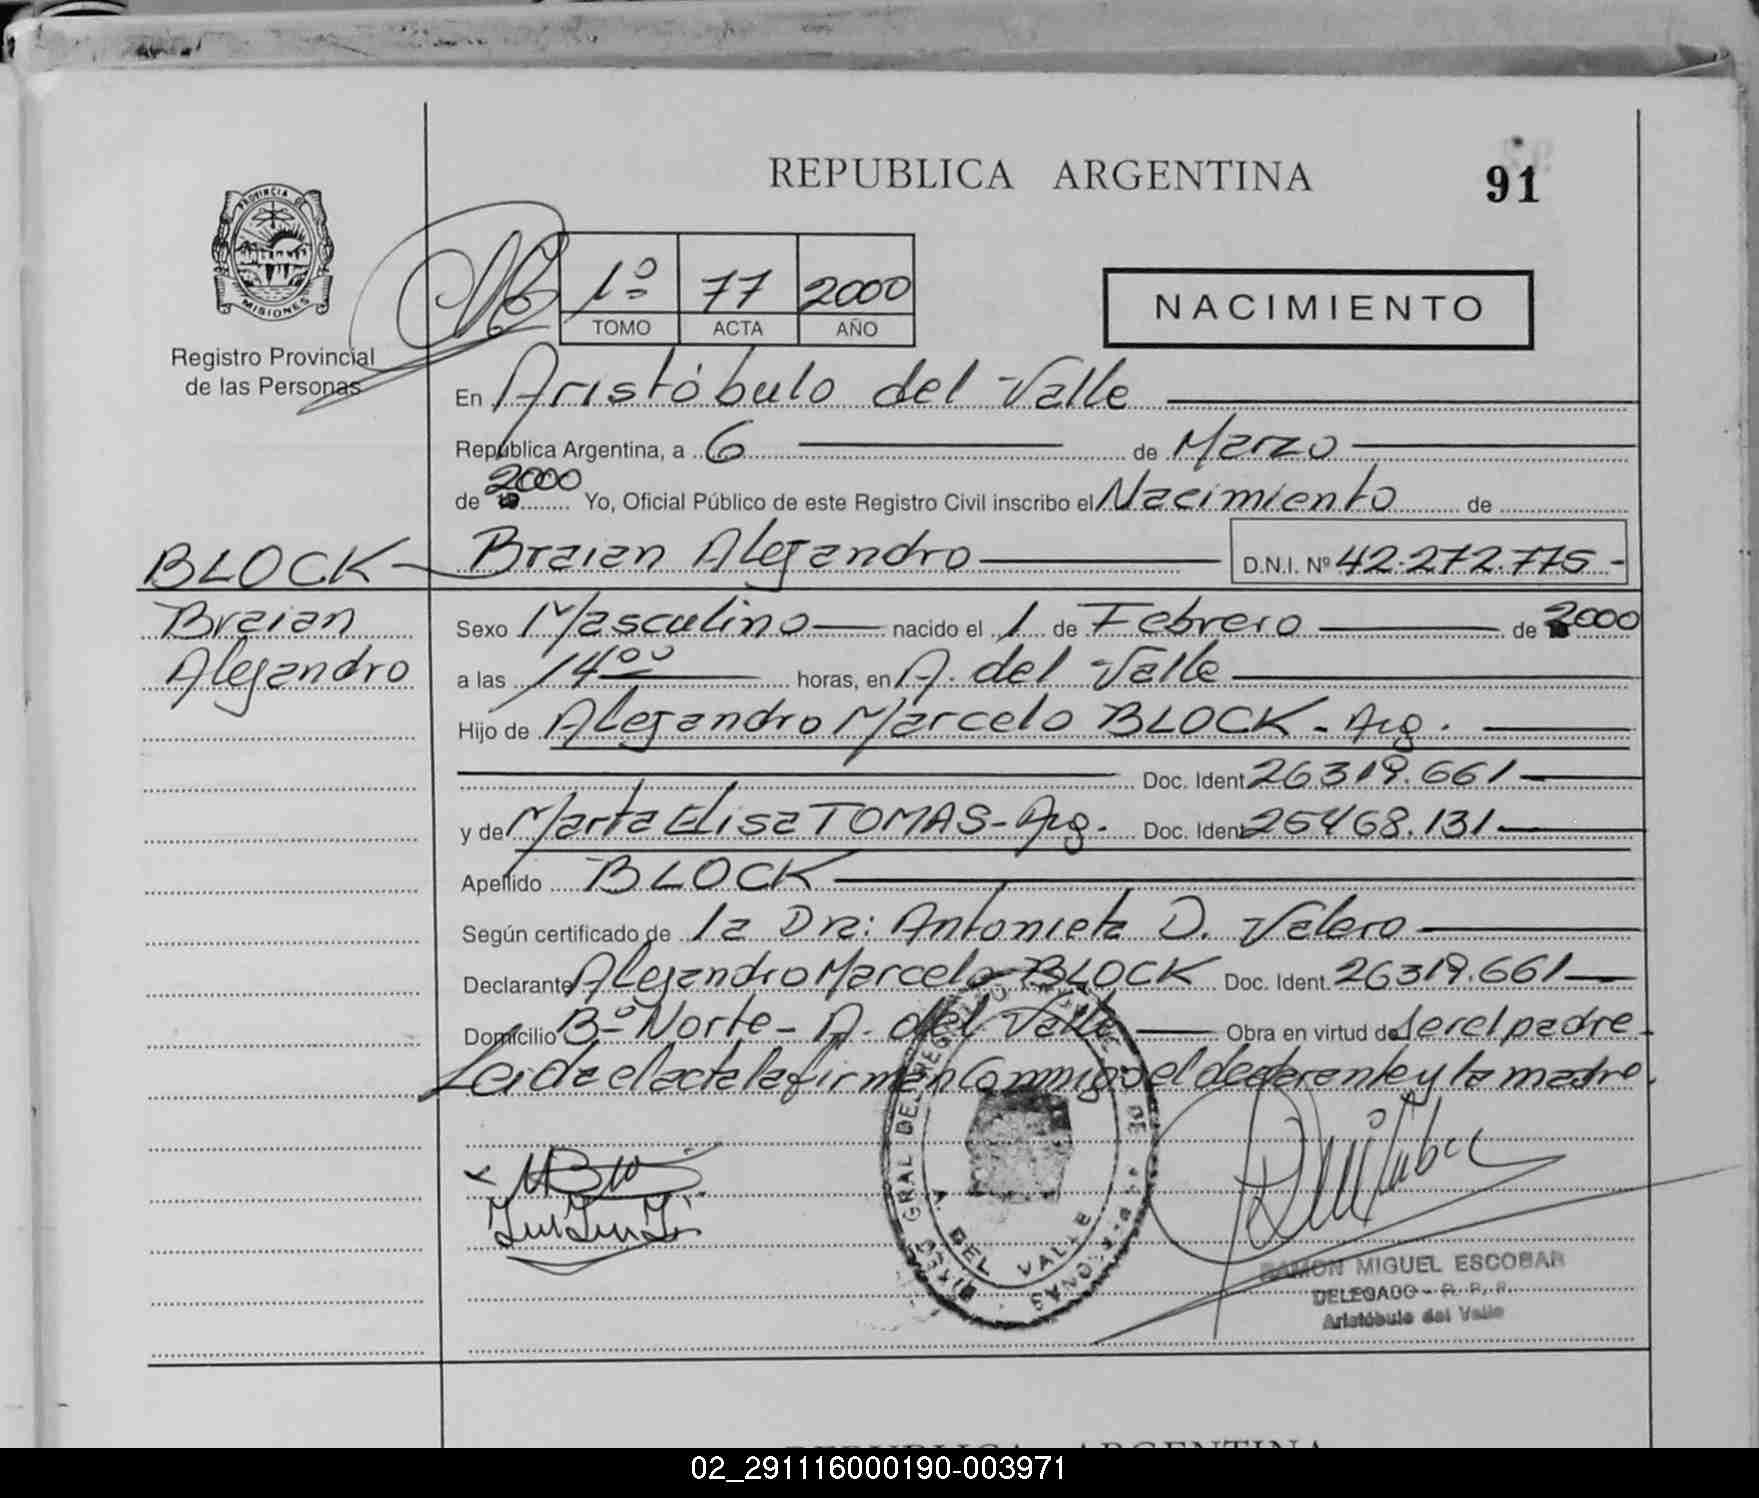 REPUBLICA ARGENTINA
91
PROVINCIA DE
MISIONES
Registro Provincial
de las Personas
1º 77 2000
TOMO ACTA AÑO
NACIMIENTO
En Aristóbulo del Valle
República Argentina, a 6 de Marzo
de 2000 Yo, Oficial Público de este Registro Civil inscribo el Nacimiento de
BLOCK Braian Alejandro D.N.I. Nº 42.272.775.-
Braian
Alejandro
Sexo Masculino nacido el 1 de Febrero de 2000
a las 14 00 horas, en A. del Valle
Hijo de Alejandro Marcelo BLOCK - Arg.
Doc. Ident. 26319.661
y de Marta Elisa TOMAS - Arg. Doc. Ident. 25468.131
Apellido BLOCK
Según certificado de la Dra: Antonieta D. Valero
Declarante Alejandro Marcelo BLOCK Doc. Ident. 26319.661
Domicilio Bº Norte - A. del Valle Obra en virtud de ser el padre.
Leida el acta la firman Conmigo el declarante y la madre.
A. DEL VALLE
RAMON MIGUEL ESCOBAR
DELEGADO - R. P. P.
Aristóbulo del Valle
REPUBLICA ARGENTINA
02_291116000190-003971